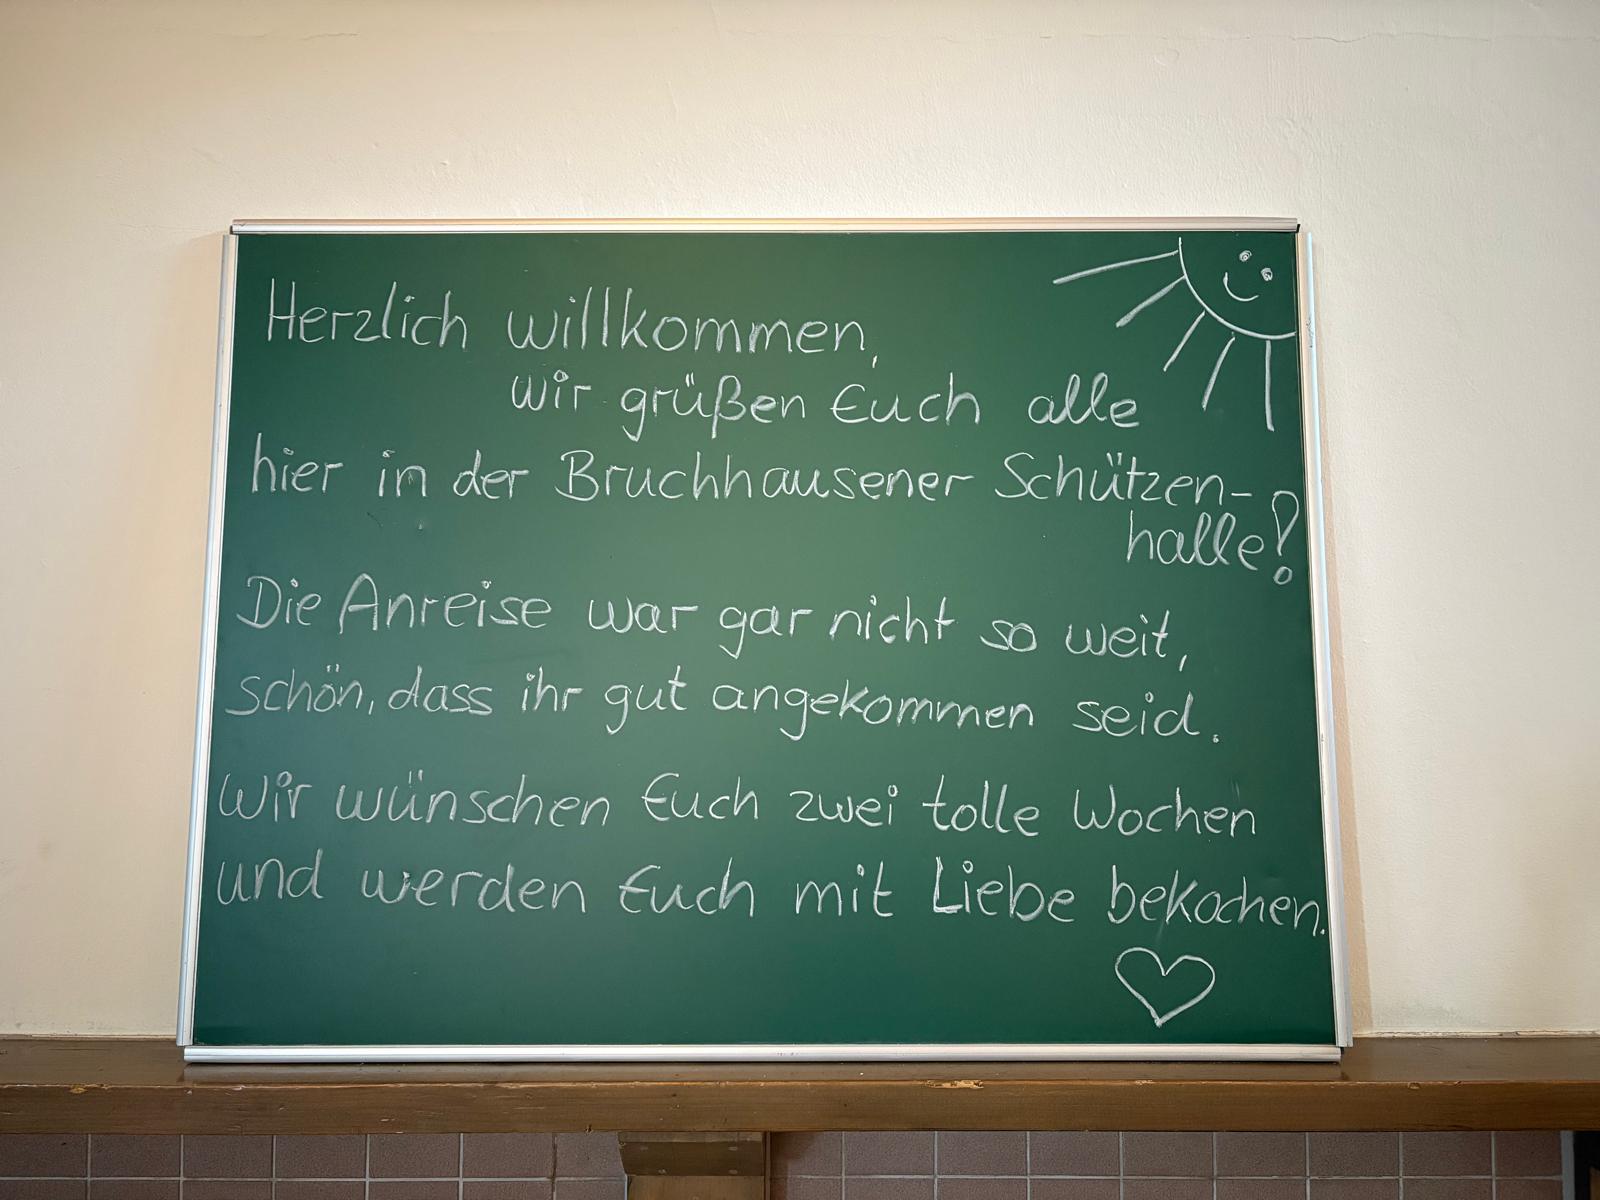 Herzlich willkommen,
wir grüßen Euch alle
hier in der Bruchhausener Schützen-
halle!
Die Anreise war gar nicht so weit,
schön, dass ihr gut angekommen seid.
Wir wünschen Euch zwei tolle Wochen
und werden Euch mit Liebe bekochen.